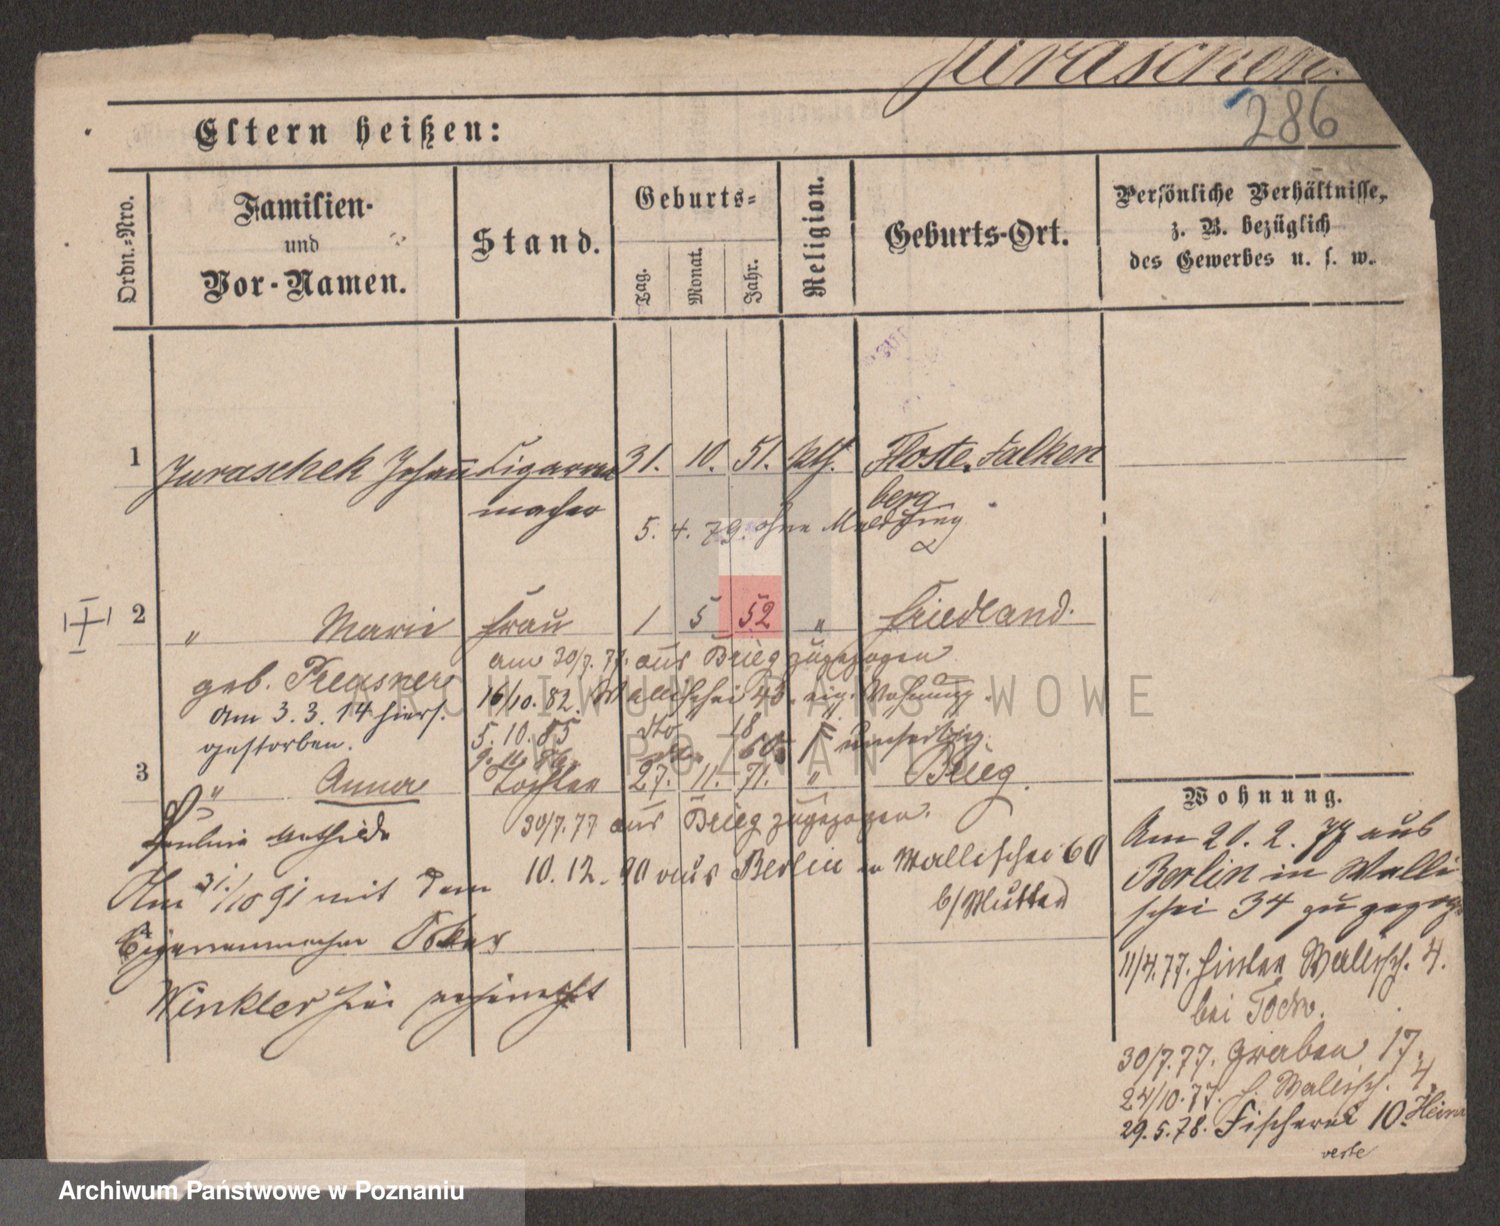 Juraschek.
286
Eltern heißen:
Ordn.-Nro.
Familien-
und
Vor-Namen.
Stand.
Geburts-
Tag.
Monat.
Jahr.
Religion.
Geburts-Ort.
Persönliche Verhältnisse,
z. B. bezüglich
des Gewerbes u. s. w.
1 Juraschek Johann Cigarren 31. 10. 51. kth. Floste. Falken
macher
berg
5. 4. 79. ohne Meldung
2 " Marie Frau 1 5 52 " Friedland.
am 30/7. 77. aus Brieg zugezogen
geb.
16/10. 82. Wallischei 43. eig. Wohnung.
Am 3. 3. 14 hiers.
gestorben.
5. 10. 85 dto 18
60
3 " Anna Tochter 27. 11. 71. " Brieg.
30/7. 77 aus Brieg zugezogen.
Pauline Mathilde
10. 12. 90 aus Berlin n Wallischei 60
b/Mutter
Am 31./10 91 mit dem
Cigarrenmacher Oskar
Winkler hier
Wohnung.
Am 21. 2. 77 aus
Berlin in Walli
schei 34 zugezog
11/4. 77. Hinter Wallisch. 4.
bei
30/7. 77. Graben 17.
24/10. 77. h. Wallisch. 4
29. 5. 78. Fischerei 10.
ARCHIWUM PAŃSTWOWE
W POZNANIU
Archiwum Państwowe w Poznaniu